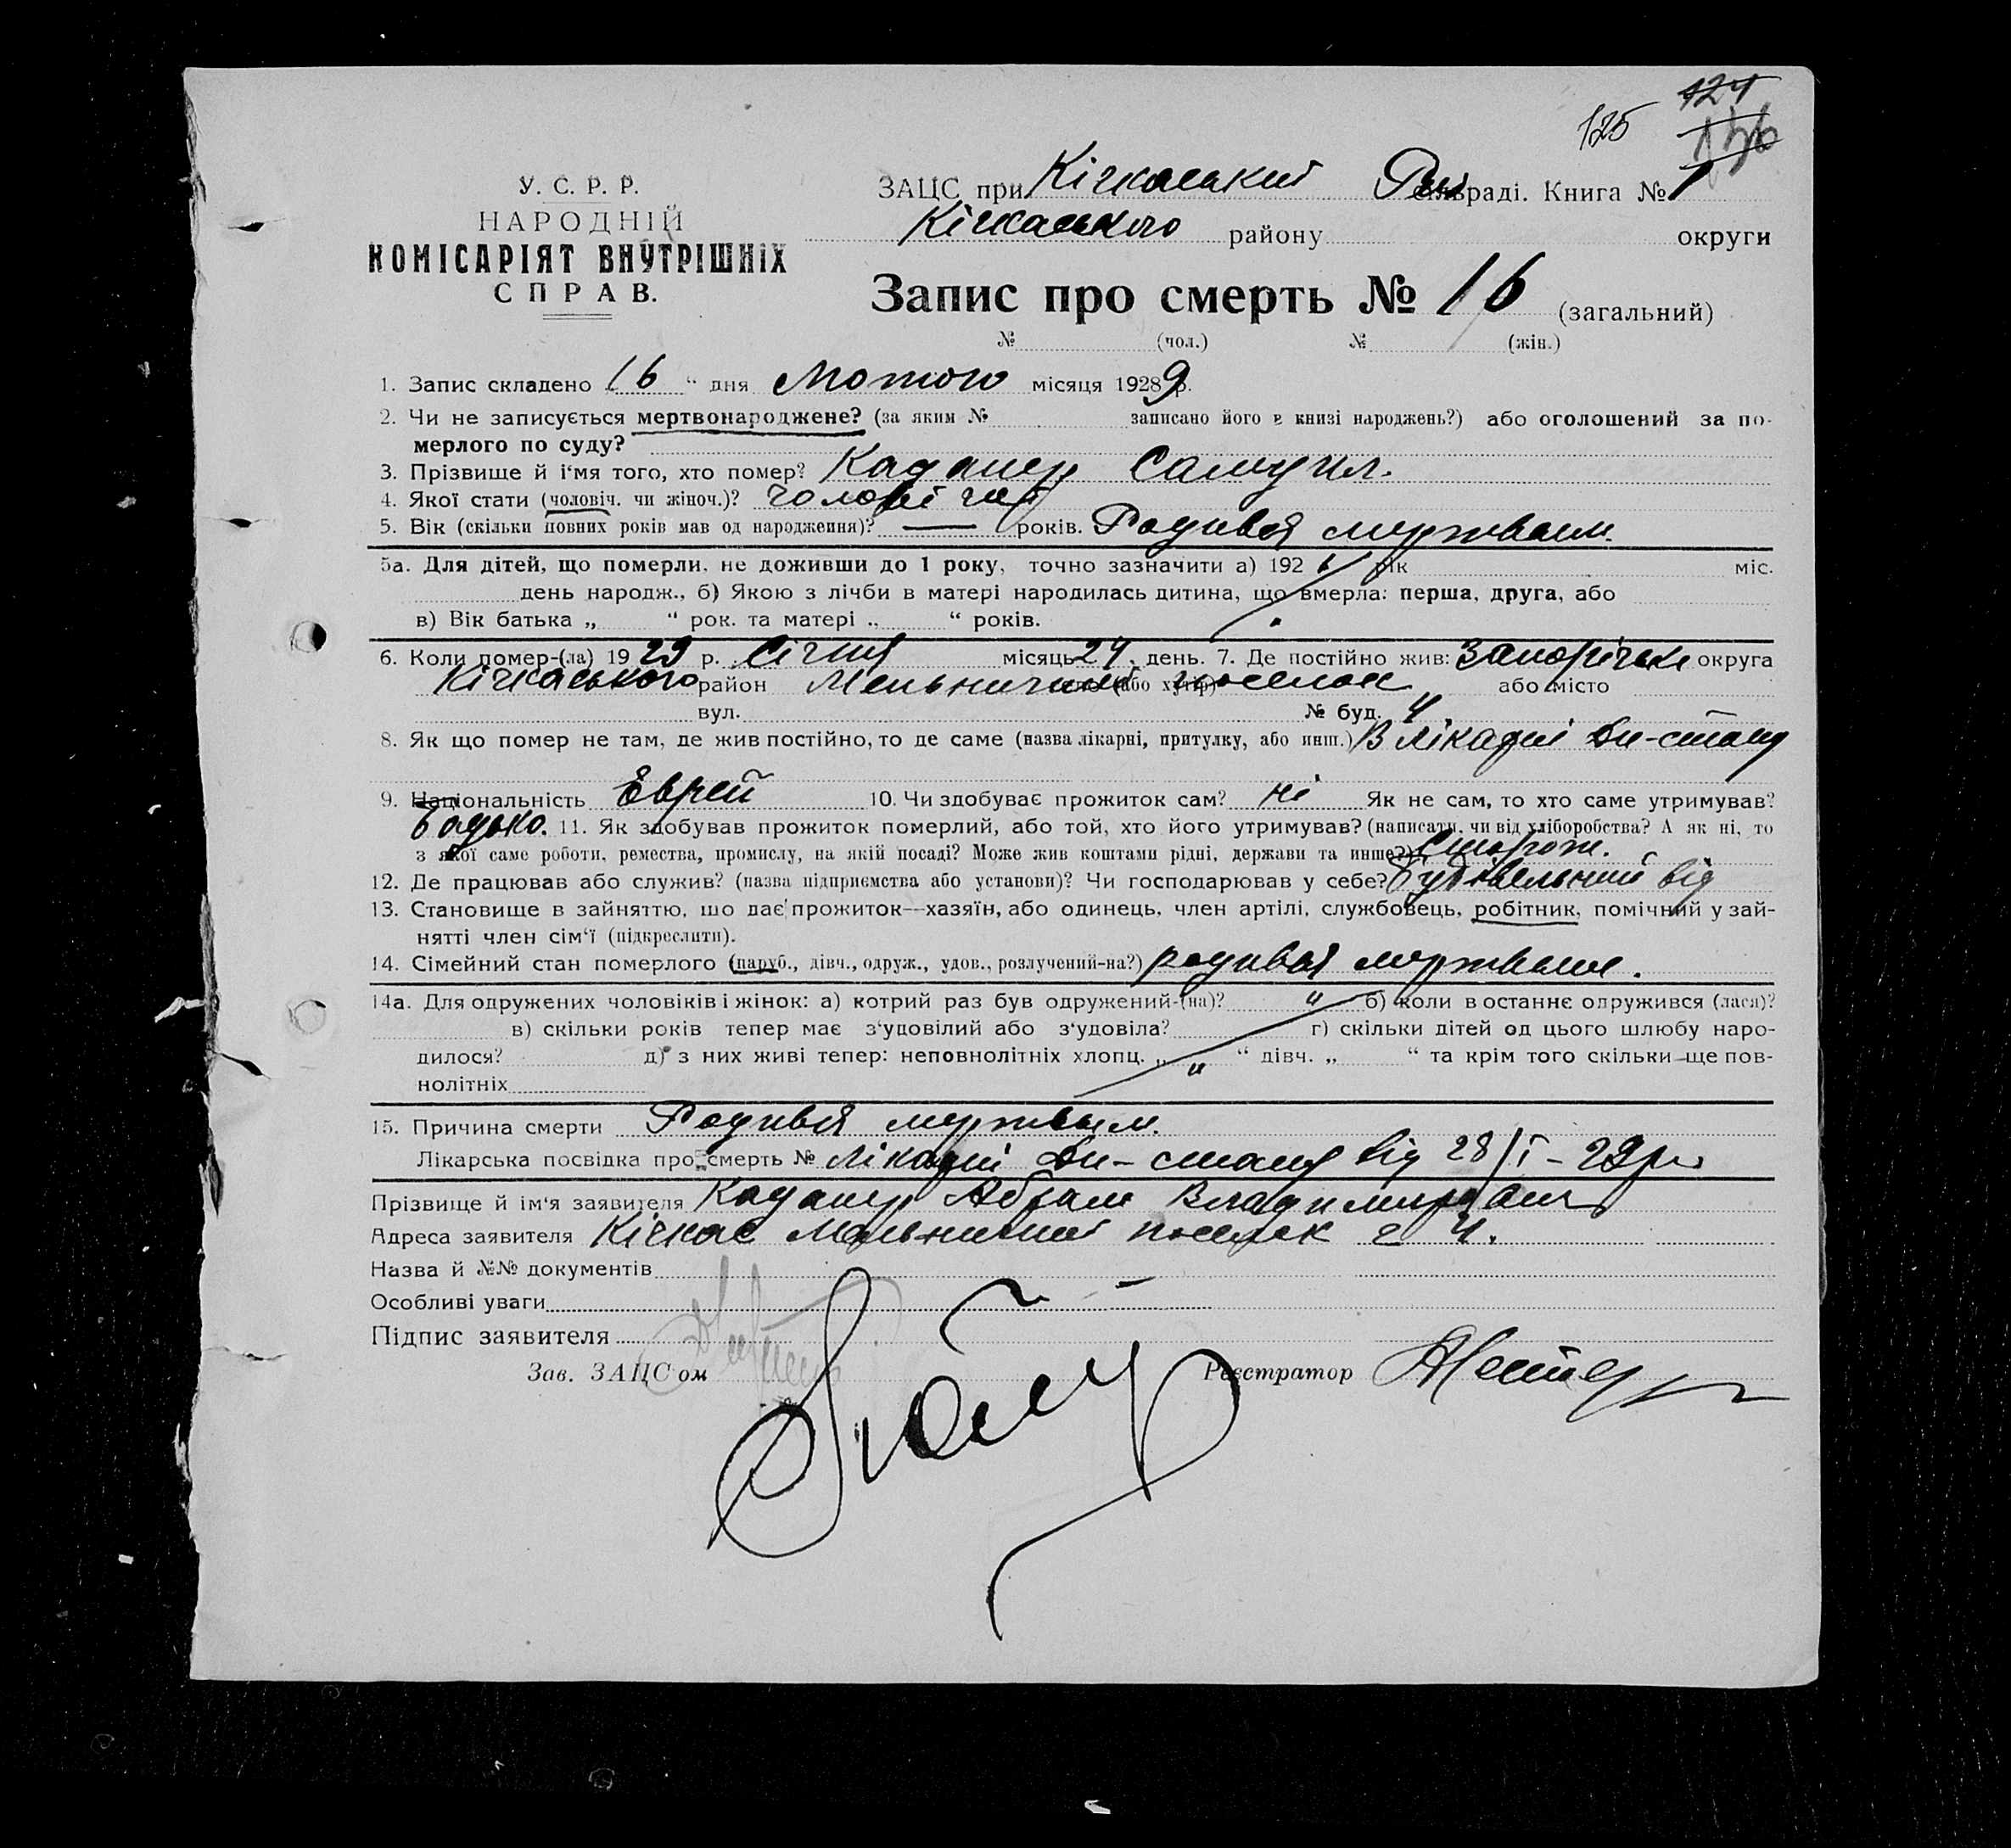 125 124
136
У. С. Р. Р.
НАРОДНІЙ
КОМІСАРІЯТ ВНУТРІШНІХ
СПРАВ.
ЗАЦС при Кічкаський Рай сільраді. Книга № 1
Кічкаського району округи
Запис про смерть № 16 (загальний)
№ (чол.) № (жін.)
1. Запис складено 16 “ дня Лютого місяця 1928 9 р.
2. Чи не записується мертвонароджене? (за яким № записано його в книзі народжень?) або оголошений за по-
мерлого по суду?
3. Прізвище й ім‘я того, хто помер? Кадашер Самуил.
4. Якої стати (чоловіч. чи жіноч.)? Чоловічій
5. Вік (скільки повних років мав од народження)? — років. Родився мертвым.
5а. Для дітей, що померли, не доживши до 1 року, точно зазначити а) 192 рік міс.
день народж., б) Якою з лічби в матері народилась дитина, що вмерла: перша, друга, або
в) Вік батька „ “ рок. та матері „ “ років.
6. Коли помер-(ла) 1929 р. Січня місяць 24 день. 7. Де постійно жив: Запоріжськ округа
Кічкаського район Мельничний (або хутір) поселок або місто
вул. № буд. 4
8. Як що помер не там, де жив постійно, то де саме (назва лікарні, притулку, або инш.) В Лікарні Дн-стану
9. Національність Еврей 10. Чи здобуває прожиток сам? ні Як не сам, то хто саме утримував?
батько. 11. Як здобував прожиток померлий, або той, хто його утримував? (написати, чи від хліборобства? А як ні, то
з якої саме роботи, ремества, промислу, на якій посаді? Може жив коштами рідні, держави та инше?) Сторож.
12. Де працював або служив? (назва підприємства або установи)? Чи господарював у себе? Будівельний від
13. Становище в зайняттю, що дає прожиток—хазяїн, або одинець, член артілі, службовець, робітник, помічний у зай-
нятті член сім‘ї (підкреслити).
14. Сімейний стан померлого (паруб., дівч., одруж., удов., розлучений-на?) родився мертвым.
14а. Для одружених чоловіків і жінок: а) котрий раз був одружений-(на)? “ б) коли в останнє одружився (лася)?
в) скільки років тепер має з‘удовілий або з‘удовіла? г) скільки дітей од цього шлюбу наро-
дилося? д) з них живі тепер: неповнолітніх хлопц. „ “ дівч. „ “ та крім того скільки ще пов-
нолітніх
15. Причина смерти Родився мертвым.
Лікарська посвідка про смерть № Лікарні Дн-стану від 28/I-29р.
Прізвище й ім‘я заявителя Кадашер Абрам Владимирович
Адреса заявителя Кічкас Мельничний поселок 4.
Назва й №№ документів
Особливі уваги
Підпис заявителя
Зав. ЗАЦС‘ом Реєстратор